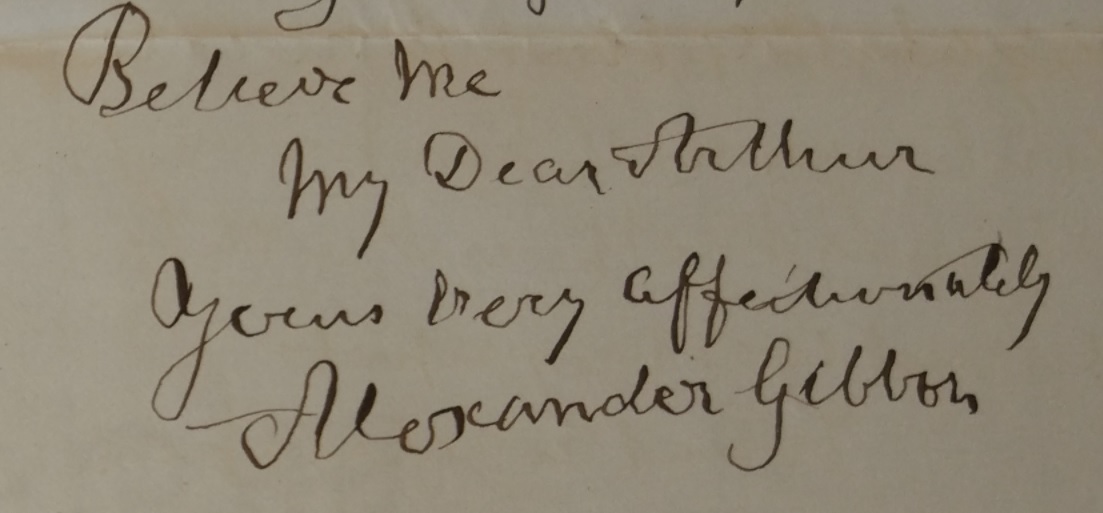 Believe Me
My Dear Arthur
Yours very affectionately
Alexander Gibbon